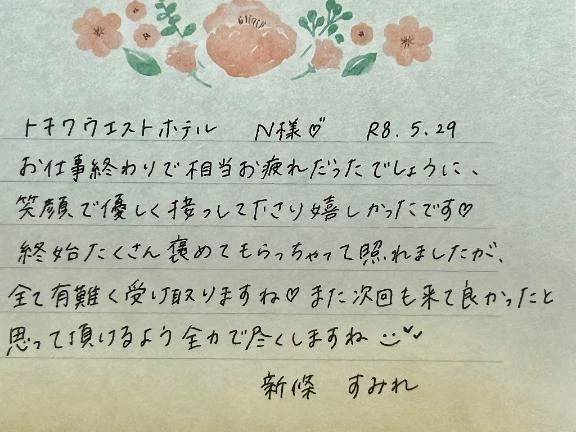 トキワウエストホテル N様♡ R8.5.29
お仕事終わりで相当お疲れだったでしょうに、
笑顔で優しく接っして下さり嬉しかったです♡
終始たくさん褒めてもらっちゃって照れましたが、
全て有難く受け取りますね♡ また次回も来て良かったと
思って頂けるよう全力で尽くしますね
新條 すみれ